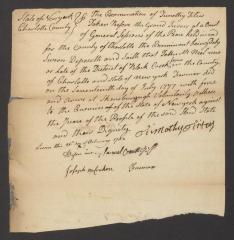 State of New york } ss The Examination of Timothy Titus
Charlotte County } Taken before the Grand Jurors at a Court
of General Sessions of the Peace held in and
for the County of Charlotte the Examinant being Duly
Sworn Deposeth and Saith that
or late of the District of in the County
of Charlotte and State of New york Yeoman did
on the Seventeenth day of July 1777 with force
and Arms at Skensborough Voluntarily
to the Enemies of the State of New york against
the Peace of the People of the said State
and their Dignity Timothy Titus
Sworn the of February 1780
Before me
Chairman